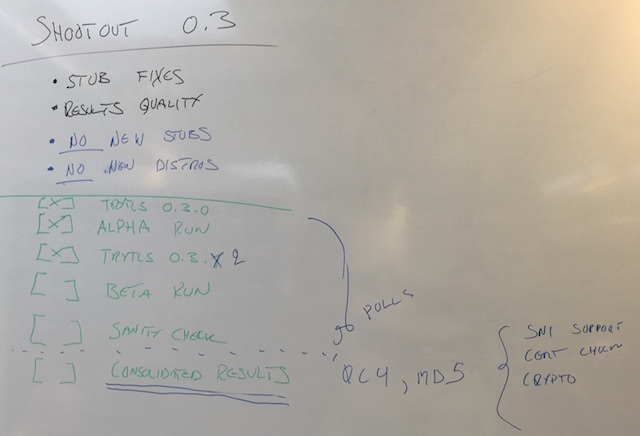 SHOOTOUT 0.3
• STUB FIXES
• RESULTS QUALITY
• NO NEW STUBS
• NO NEW DISTROS
[X] TRYTLS 0.3.0
[X] ALPHA RUN
[X] TRYTLS 0.3.X 2
[ ] BETA RUN
[ ] SANITY CHECK
POLLS
[ ] CONSOLIDATED RESULTS
RC4, MD5
SNI SUPPORT
CERT CHAIN
CRYPTO